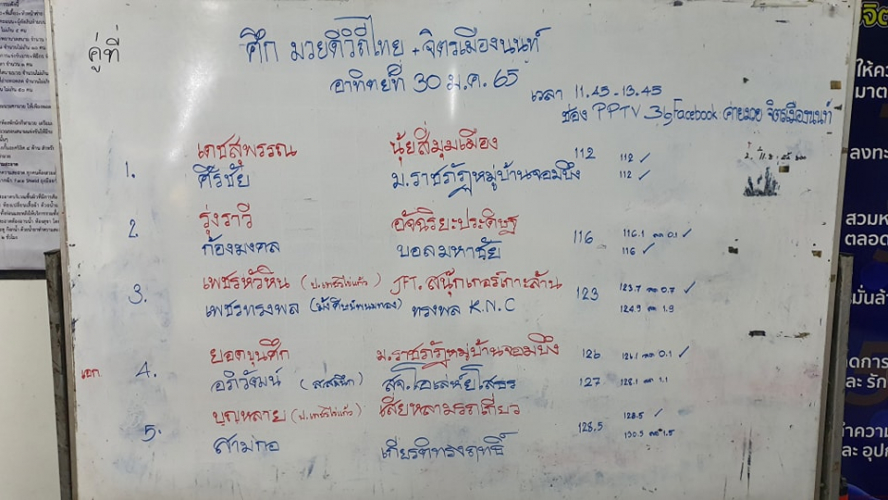 คู่ที่
ศึก มวยดีวิถีไทย + จิตรเมืองนนท์
อาทิตย์ที่ 30 ม.ค. 65
เวลา 11.45-13.45
ช่อง PPTV 36, Facebook ค่ายมวย จิตรเมืองนนท์
1. เดชสุพรรณ นุ้ยสี่มุมเมือง 112 112 ✓
ศิริชัย ม.ราชภัฏหมู่บ้านจอมบึง 112 ✓
2 รุ่งราวี อัจฉริยะประดิษฐ 116 116.1 ลด 0.1 ✓
ก้องมงคล บอลมหาชัย 116 ✓
3. เพชรหัวหิน JFT. สนุ๊กเกอร์เกาะล้าน 123 123.7 ลด 0.7 ✓
เพชรทรงพล ทรงพล K.N.C 124.9 ลด 1.9
เอก. 4. ยอดขุนศึก ม.ราชภัฏหมู่บ้านจอมบึง 126 126.1 ลด 0.1 ✓
อภิวัฒน์ สจ.โอเล่ห์ยโสธร 127 128.1 1.1
5. บุญหลาย เสี่ยหลามรถเกี่ยว 128.5 128.5 ✓
สามกอ เกียรติทรงฤทธิ์ 130.9
ให้คว
มาต
ลงทะ
สวมห
ตลอด